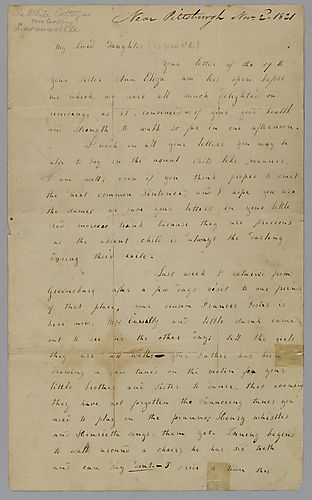 White Cottage
Near Pittsburgh Nov. 2. 1821
My Loved Daughter (13 years old)
Your letter of the 19 to
your Sister Ann Eliza now lies open before
me which, we were all much delighted on
receiving, as it convinced of your good health
and strength to walk so far in one afternoon.
I wish in all your letters you may be
able to say in the usual child like manner
I am well, even if you think proper to omit
the next common sentence, and I hope you are
the same, we save your letters in your little
red morocco trunk because they are precious
as the absent child is always the darling
during their exile.
Last week I returned from
Greensburg after a few days visit to our friends
of that place, your cousin Frances Foster is
here now, Mrs and little Sarah came
out to see us the other day, tell the girls
they are all well. Your Father has been
drawing a few tunes on the violin for your
little brother and Sister to dance, this evening
they have not forgotten the dancing tunes you
used to play on the pianno, Henry whistles
and Henrietta sings them yet. Duning begins
to walk around a chair, he has six teeth
and can say I to town this